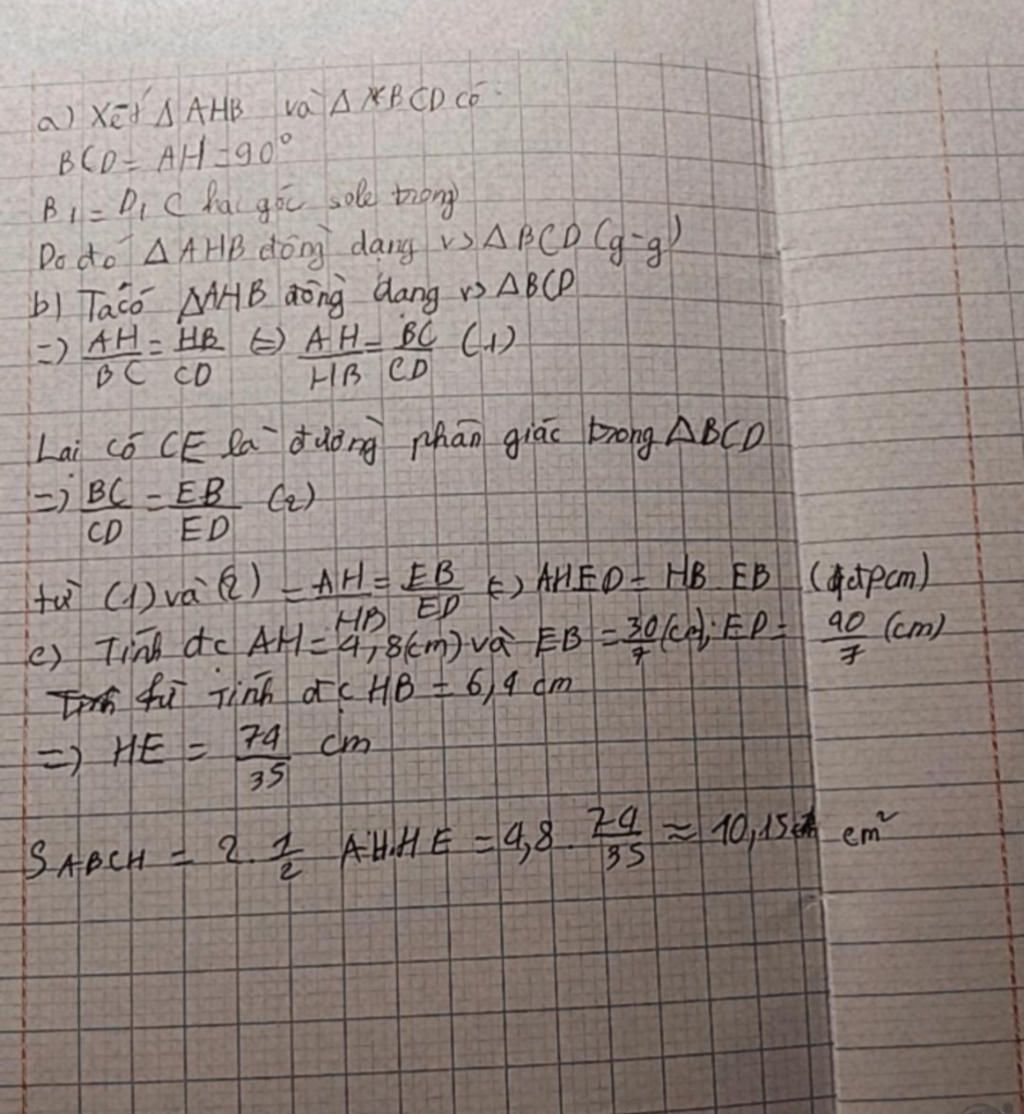 a) Xét Δ AHB và Δ BCD có
BCD = AH = 90°
B₁ = D₁ ( hai góc sole trong
Do đó Δ AHB đồng dạng vs Δ BCD (g-g)
b) Ta có ΔAHB đồng dạng vs ΔBCD
=> AH/BC = HB/CD <=> AH/HB = BC/CD (1)
Lại có CE là đường phân giác trong ΔBCD
=> BC/CD = EB/ED (2)
từ (1) và (2) = AH/HB = EB/ED <=> AH ED = HB EB (đpcm)
c) Tính đc AH = 4,8(cm) và EB = 30/7 (cm); ED = 40/7 (cm)
từ Tính đc HB = 6,4 cm
=> HE = 74/35 cm
SABCH = 2. 1/2 AH.HE = 4,8 . 74/35 ≈ 10,15 cm²